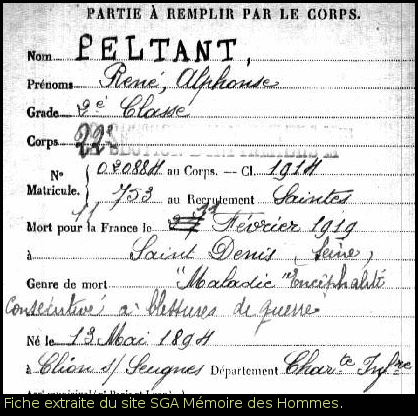 PARTIE À REMPLIR PAR LE CORPS.
Nom PELTANT,
Prénoms René, Alphonse
Grade 2è Classe
Corps 22è
N° Matricule. 020884 au Corps. — Cl. 1914
753 au Recrutement Saintes
Mort pour la France le 11 Février 1919
à Saint Denis (Seine)
Genre de mort "Maladie" Encéphalité
consécutive à blessures de guerre
Né le 13 Mai 1894
à Clion s/ Seugnes Département Charte Infre
Fiche extraite du site SGA Mémoire des Hommes.